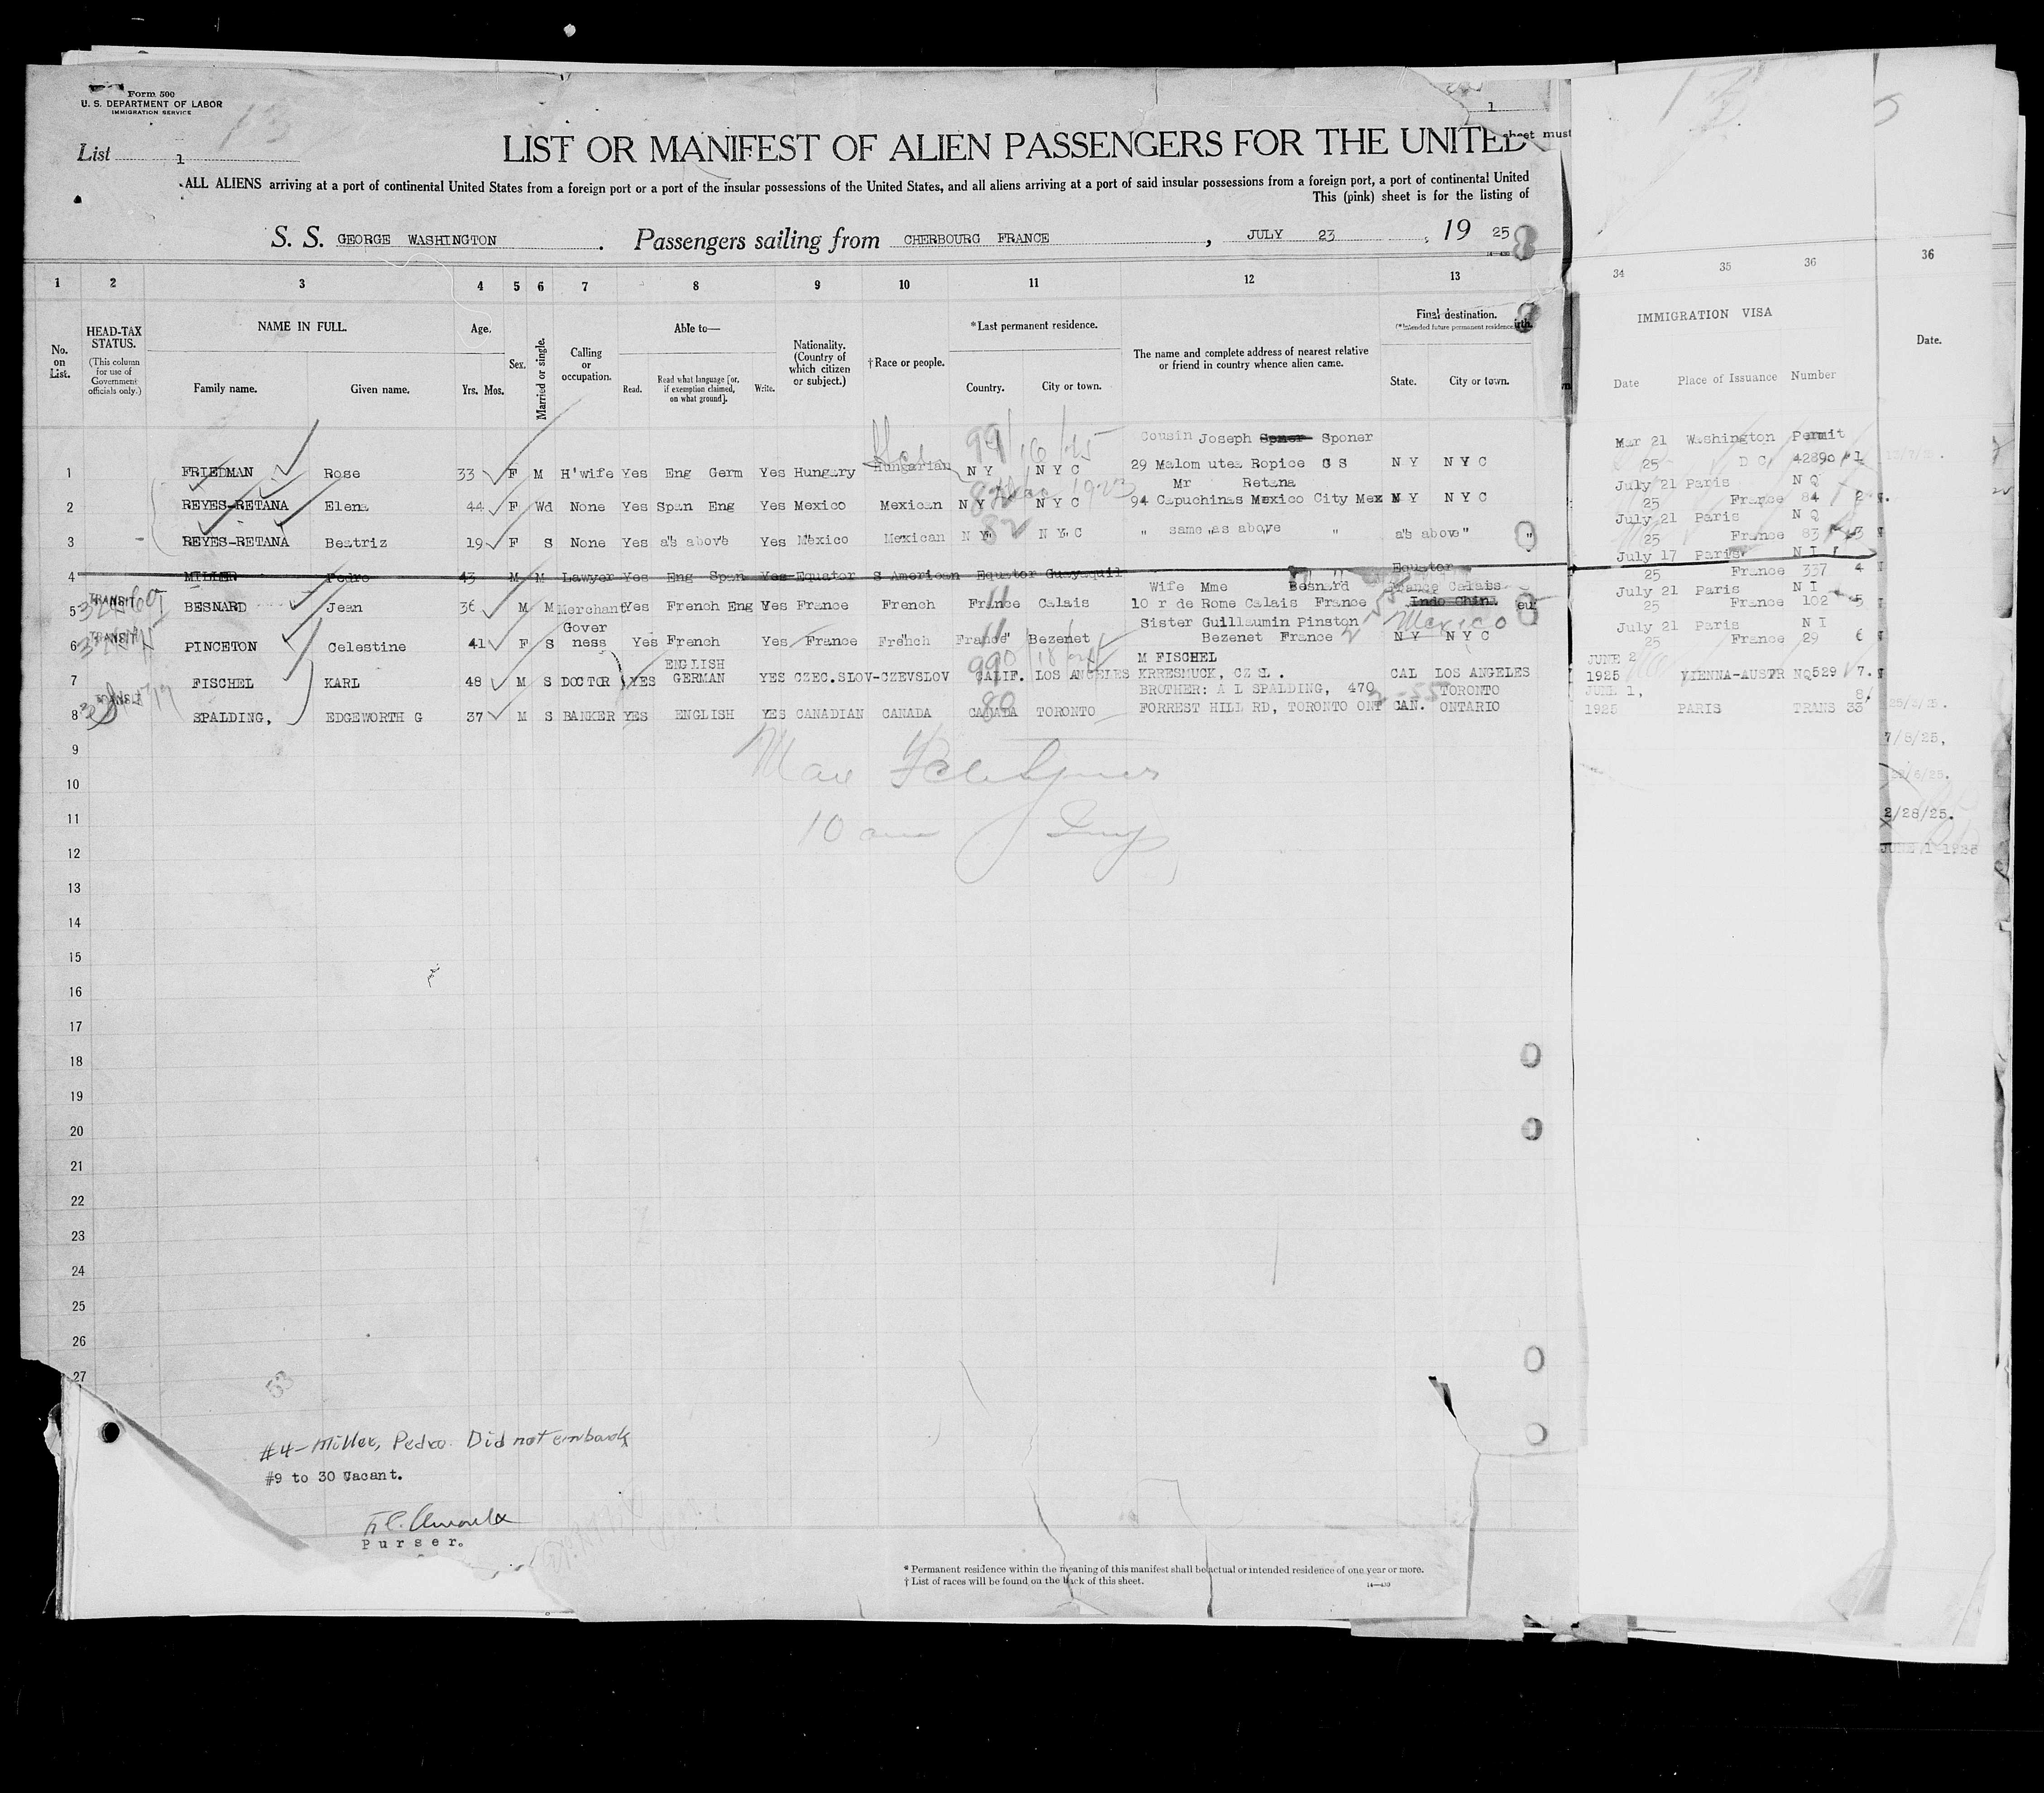 Form 500
U. S. DEPARTMENT OF LABOR
IMMIGRATION SERVICE
13
List 1
1
sheet must
LIST OR MANIFEST OF ALIEN PASSENGERS FOR THE UNITED
ALL ALIENS arriving at a port of continental United States from a foreign port or a port of the insular possessions of the United States, and all aliens arriving at a port of said insular possessions from a foreign port, a port of continental United
This (pink) sheet is for the listing of
S. S. GEORGE WASHINGTON. Passengers sailing from CHERBOURG FRANCE, JULY 23, 19 25
1 2 3 4 5 6 7 8 9 10 11 12 13 34 35 36 36
No. on List.
HEAD-TAX STATUS.
(This column for use of Government officials only.)
NAME IN FULL.
Family name. Given name.
Age.
Yrs. Mos.
Sex.
Married or single.
Calling or occupation.
Able to—
Read. Read what language [or, if exemption claimed, on what ground]. Write.
Nationality. (Country of which citizen or subject.)
†Race or people.
*Last permanent residence.
Country. City or town.
The name and complete address of nearest relative or friend in country whence alien came.
Final destination.
(*Intended future permanent residence
State. City or town.
IMMIGRATION VISA
Date Place of Issuance Number
Date.
Cousin Joseph Sponer Mar 21 Washington Permit
1 FRIEDMAN Rose 33 F M H'wife Yes Eng Germ Yes Hungary Hungarian N Y N Y C 29 Malom utea Ropice C S N Y N Y C 25 D C 42890 1
Mr Retana July 21 Paris N Q
2 REYES-RETANA Elena 44 F Wd None Yes Span Eng Yes Mexico Mexican N Y N Y C 94 Capuchinas Mexico City Mex N Y N Y C 25 France 84 2
July 21 Paris N Q
3 REYES-RETANA Beatriz 19 F S None Yes as above Yes Mexico Mexican N Y N Y C " same as above " as above " 25 France 83 3
July 17 Paris N I
4 MILLER Pedro 43 M M Lawyer Yes Eng Span Yes Equator S American Equator Guayaquil Equator 25 France 337 4
Wife Mme Besnard France Calais July 21 Paris N I
5 TRANSIT BESNARD Jean 36 M M Merchant Yes French Eng Yes France French France Calais 10 r de Rome Calais France Indo China 25 France 102 5
Mexico
Gover Sister Guillaumin Pinston July 21 Paris N I
6 TRANSIT PINCETON Celestine 41 F S ness Yes French Yes France French France Bezenet Bezenet France N Y N Y C 25 France 29 6
ENGLISH M FISCHEL JUNE 2
7 FISCHEL KARL 48 M S DOCTOR YES GERMAN YES CZEC.SLOV-CZEVSLOV CALIF. LOS ANGELES KRRESMUCK, CZ SL. CAL LOS ANGELES 1925 VIENNA-AUSTR NQ529 7.
BROTHER: A L SPALDING, 470 TORONTO JUNE 1, 8
8 TRANSIT SPALDING, EDGEWORTH G 37 M S BANKER YES ENGLISH YES CANADIAN CANADA CANADA TORONTO FORREST HILL RD, TORONTO ONT CAN. ONTARIO 1925 PARIS TRANS 33
9
7/8/25,
10
11
2/28/25.
10 am
12
JUNE 1-1925
13
14
15
16
17
18
19
20
21
22
23
24
25
26
27
53
#4 - Miller, Pedro. Did not embark
#9 to 30 Vacant.
Purser.
* Permanent residence within the meaning of this manifest shall be actual or intended residence of one year or more.
† List of races will be found on the back of this sheet.
14—430